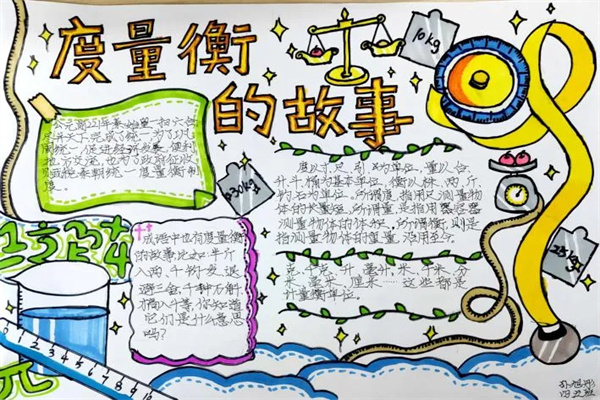 度量衡
的故事
10kg
公元前221年秦始皇一扫六合
天下完成了统一为了巩
固统一促进经济发展便利
地方交流,也为了政府征收
统一度量衡制
度。
30kg
成语中也有度量衡
的故事比如:半斤
八两,千钧一发,退
避三舍,千种石斛
才高八斗等,你知道
它们是什么意思
吗?
度以寸、尺、引、为单位,量以合、
升、斗、桶为基本单位,衡以铢、两、斤、
钧、石为单位。所谓度,指用尺测量物
体的长度,所谓量,是指用容器
测量物体的体积,所谓衡,则是
指测量物体的重量,沿用至今。
克、千克、升、毫升、米、千米、分
米、毫米、厘米……这些都是
计量衡单位。
25kg
1 2 3 4 5 6 7 8 9 10
π